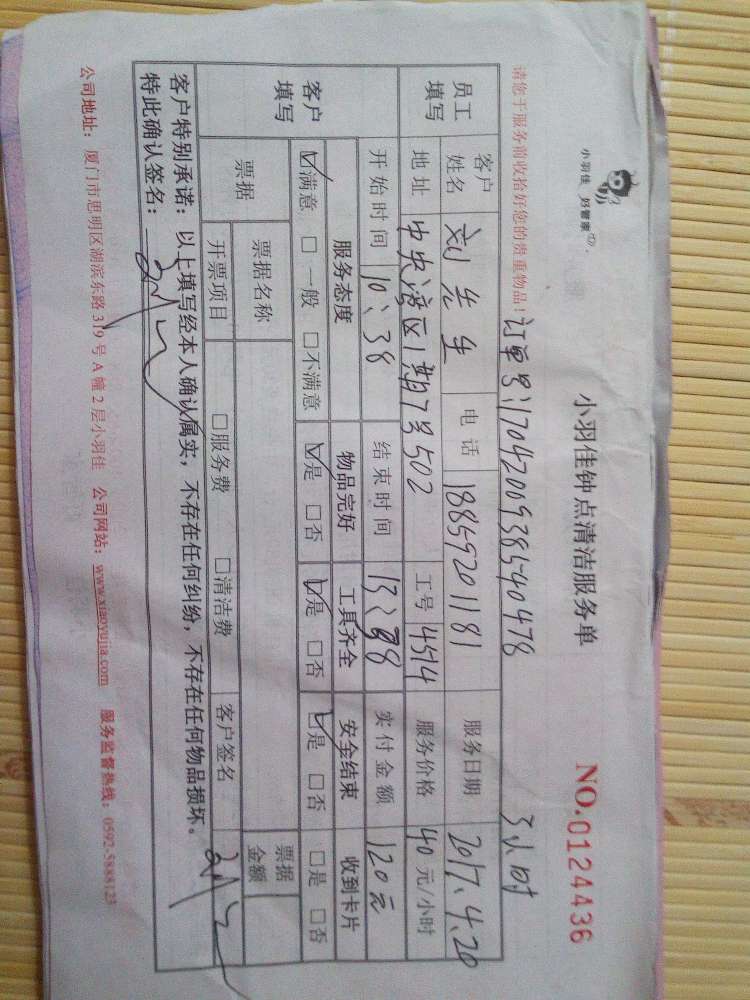 小羽佳 好管家
小羽佳钟点清洁服务单
NO.0124436
请您于服务前收拾好您的贵重物品！
订单号：1704200938540478
3小时
员工填写
客户姓名 刘先生 电话 18859201181 服务日期 2017.4.20
地址 中央湾区1期7号502 工号 4514 服务价格 40元/小时
开始时间 10:38 结束时间 13:38 实付金额 120元
客户填写
服务态度 物品完好 工具齐全 安全结束 收到卡片
☑满意 □一般 □不满意 ☑是 □否 ☑是 □否 ☑是 □否 □是 □否
票据 票据名称 票据金额
开票项目 □服务费 □清洁费 客户签名
客户特别承诺：以上填写经本人确认属实，不存在任何纠纷，不存在任何物品损坏。
特此确认签名：
公司地址：厦门市思明区湖滨东路319号A幢2层小羽佳 公司网站：www.xiaoyujia.com 服务监督热线：0592-5888123